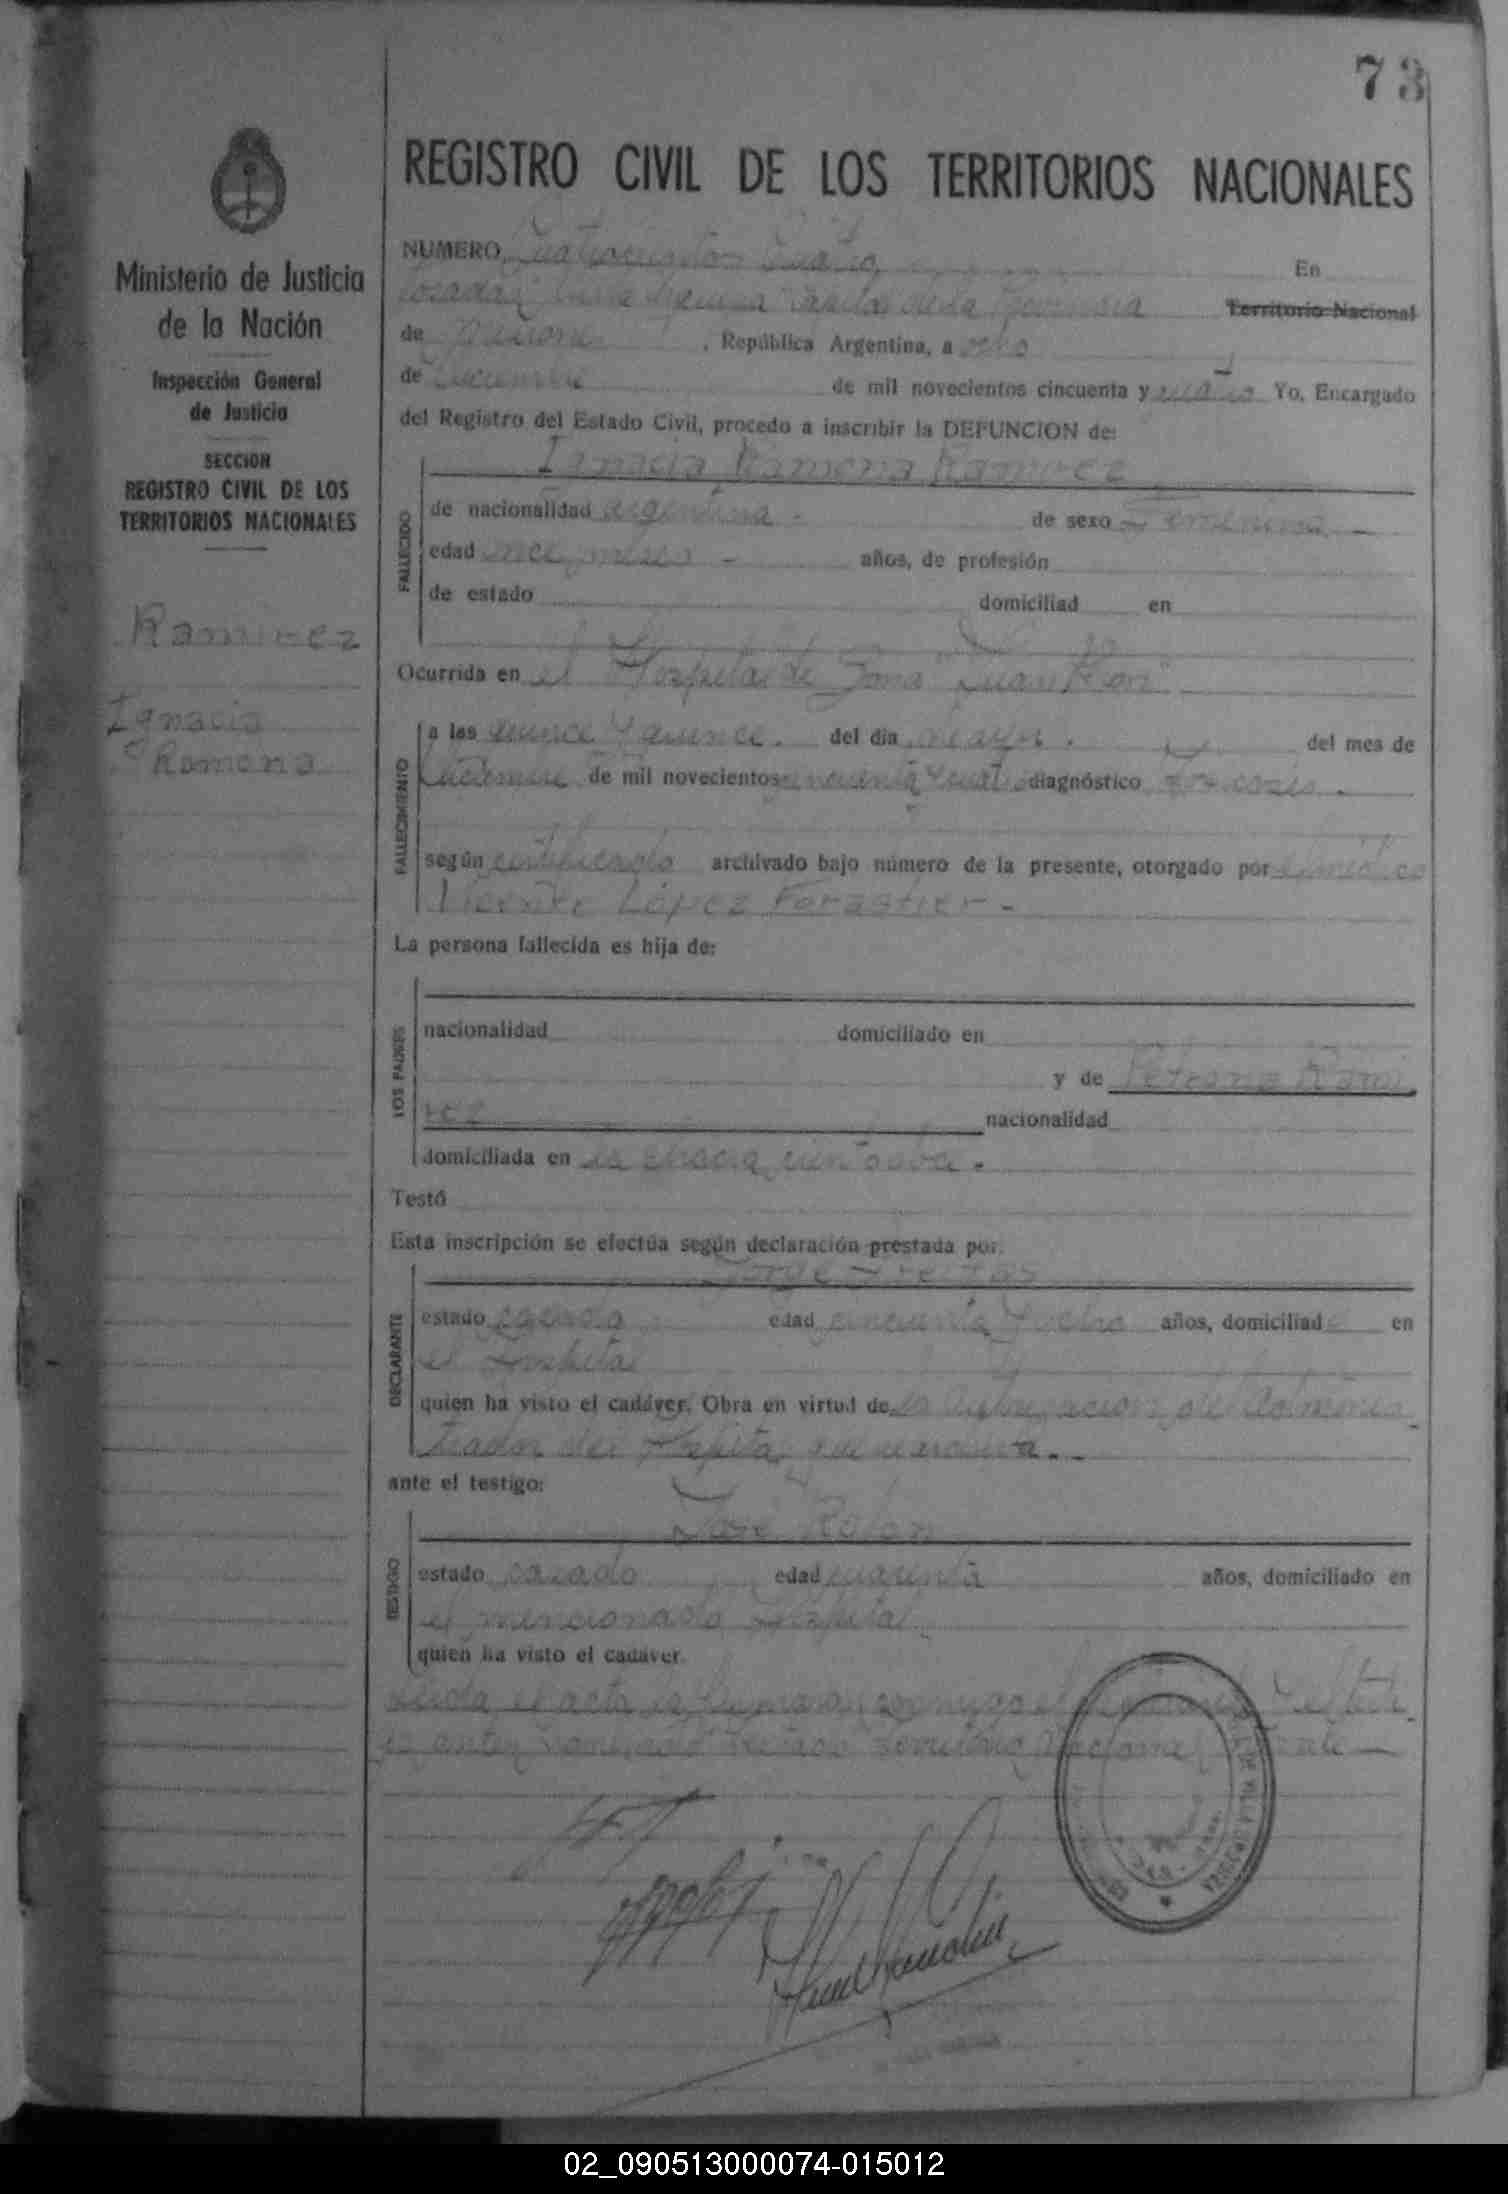 73
REGISTRO CIVIL DE LOS TERRITORIOS NACIONALES
Ministerio de Justicia
de la Nación
Inspección General
de Justicia
SECCION
REGISTRO CIVIL DE LOS
TERRITORIOS NACIONALES
Ramirez
Ignacia
Ramona
NUMERO Cuatrocientos Cuatro En
Posadas Capital de la Provincia Territorio Nacional
de Misiones, República Argentina, a ocho
de Diciembre de mil novecientos cincuenta y cuatro Yo, Encargado
del Registro del Estado Civil, procedo a inscribir la DEFUNCION de:
Ignacia Ramona Ramirez
FALLECIDO
de nacionalidad argentina - de sexo Femenino -
edad once meses - años, de profesión
de estado domiciliad en
Ocurrida en el Hospital de Zona "Juan Perón"
FALLECIMIENTO
a las quince y quince. del día de ayer. del mes de
Diciembre de mil novecientos cincuenta y cuatro diagnóstico
según certificado archivado bajo número de la presente, otorgado por el médico
Vicente López Forastier -
La persona fallecida es hija de:
LOS PADRES
nacionalidad domiciliado en
y de Petrona Rami
rez nacionalidad
domiciliada en la chacra ciento
Testó
Esta inscripción se efectúa según declaración prestada por:
Jorge Freitas
DECLARANTE
estado casado edad cincuenta y ocho años, domiciliado en
el Hospital
quien ha visto el cadáver. Obra en virtud de la autorización del Adminis
trador del Hospital que se archiva. -
ante el testigo:
José Rolon
TESTIGO
estado casado edad cuarenta años, domiciliado en
el mencionado Hospital
quien ha visto el cadáver.
Leida el acta la firmaron conmigo el declarante y el testi
go antes nombrado Testado Territorio Nacional
02_090513000074-015012